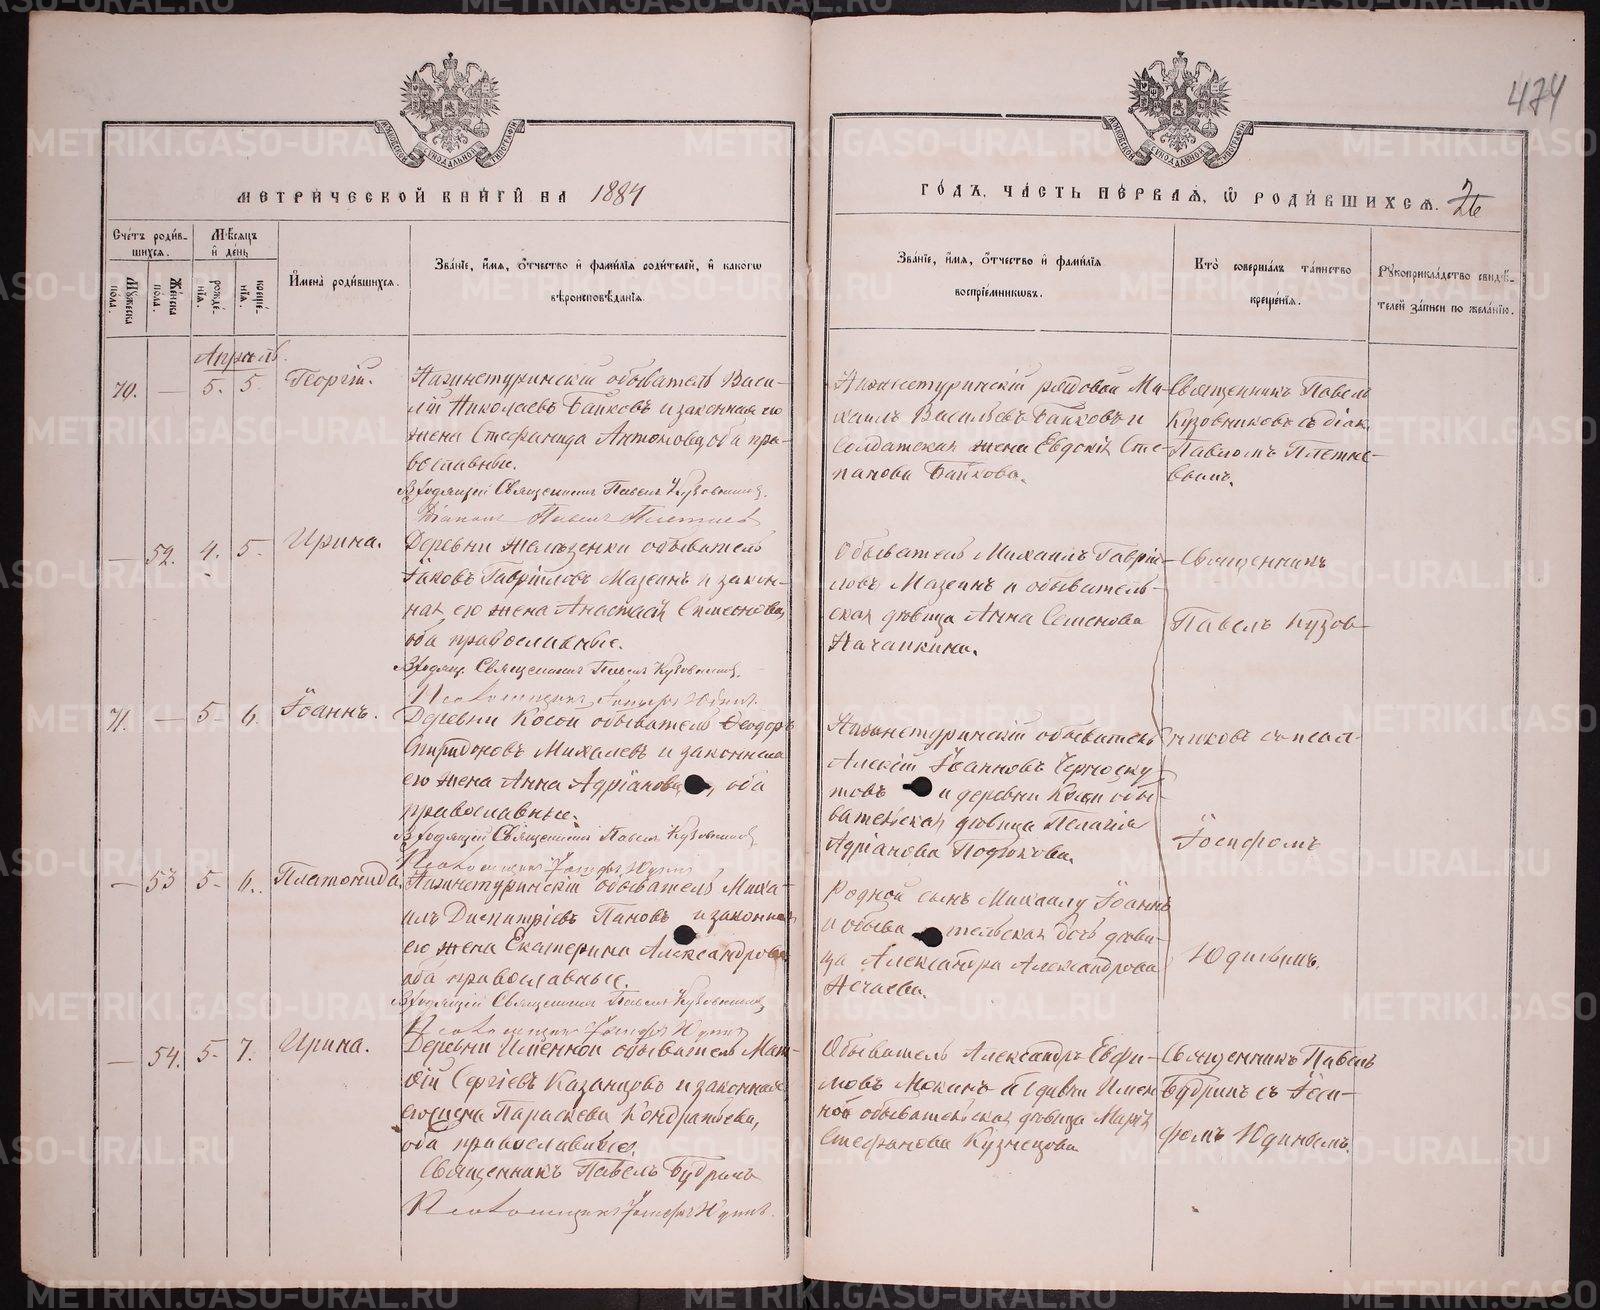 474
МОСКОВСКОЙ СѴНОДАЛЬНОЙ ТИПОГРАФІИ
МОСКОВСКОЙ СѴНОДАЛЬНОЙ ТИПОГРАФІИ
МЕТРИ́ЧЕСКОЙ КНИ́ГИ НА 1884
Счётъ роди́в-
шихся.
Мѣ́сяцъ
и҆ де́нь
Му́жеска по́ла.
Же́нска по́ла.
рожде́-
нїѧ.
креще́-
нїѧ.
И҆мена̀ роди́вшихся.
Зва́нїе, и҆́мѧ, ѻ҆́тчество и҆ фами́лїѧ роди́телей, и҆ како́гѡ
вѣроисповѣ́данїѧ.
Апрѣль.
70. — 5. 5. Георгій.
Нижнетуринскій обыватель Васи-
лій Николаевъ Байковъ и законная его
жена Стефанида Антонова, оба пра-
вославные.
Входящій Священникъ Павелъ Кузовниковъ
Діаконъ Павелъ Плетневъ
— 52. 4. 5. Ирина.
Деревни Желѣзенки обыватель
Іаковъ Гавріиловъ Мазеинъ и закон-
ная его жена Анастасія Симеонова,
оба православные.
Входящ. Священникъ Павелъ Кузовниковъ
Псаломщикъ Іосифъ Юдинъ
71. — 5. 6. Іоаннъ.
Деревни Косой обыватель Ѳеодоръ
Спиридоновъ Михалевъ и законная
его жена Анна Адріанова, оба
православные.
Входящій Священникъ Павелъ Кузовниковъ
Псаломщикъ Іосифъ Юдинъ
— 53 5. 6. Платонида.
Нижнетуринскій обыватель Миха-
илъ Димитріевъ Пановъ и законная
его жена Екатерина Александрова
оба православные.
Входящій Священникъ Павелъ Кузовниковъ
Псаломщикъ Іосифъ Юдинъ
— 54. 5. 7. Ирина.
Деревни Именной обыватель Мат-
ѳій Сергіевъ Казанцовъ и законная
его жена Параскева Кондратьева,
оба православные.
Священникъ Павелъ Будринъ
Псаломщикъ Іосифъ Юдинъ.
ГО́ДЪ, ЧА́СТЬ ПЕ́РВАЯ, Ѡ҆ РОДИ́ВШИХСЯ. 26
Зва́нїе, и҆́мѧ, ѻ҆́тчество и҆ фами́лїѧ
воспрїе́мникѡвъ.
Кто̀ соверша́лъ та́инство
креще́нїѧ.
Рꙋкоприкла́дство свидѣ́-
телей за́писи по жела́нїю.
Нижнетуринскій рядовой Ми-
хаилъ Васильевъ Байковъ и
Солдатская жена Евдокія Сте-
панова Байкова.
Священникъ Павелъ
Кузовниковъ съ діак.
Павломъ Плетне-
вымъ.
Обыватель Михаилъ Гаврiи-
ловъ Мазеинъ и обыватель-
ская дѣвица Анна Семенова
Начапкина.
Священникъ
Павелъ Кузов-
Нижнетуринскій обыватель
Алексій Іоанновъ Черноску-
товъ и деревни Косой обы-
вательская дѣвица Пелагія
Адріанова
никовъ съ псал.
Іосифомъ
Родной сынъ Михаилу Іоаннъ
и обывательская дочь дѣви-
ца Александра Александрова
Нечаева.
Юдинымъ.
Обыватель Александръ Евфи-
мовъ Мокинъ и деревни Имен
ной обывательская дѣвица Марія
Стефанова Кузнецова
Священникъ Павелъ
Будринъ съ Іоси-
фомъ Юдинымъ.
METRIKI.GASO-URAL.RU